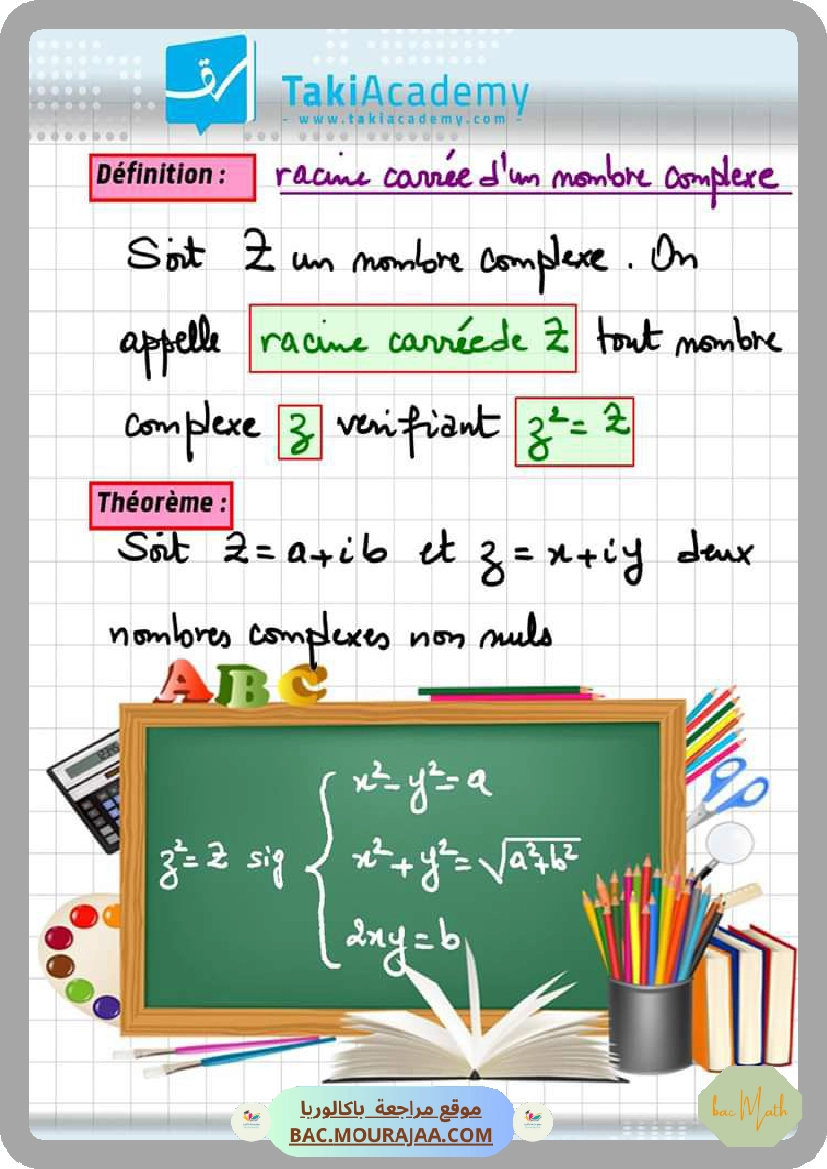 TakiAcademy
- www.takiacademy.com -
Définition : racine carrée d'un nombre complexe
Soit Z un nombre complexe. On
appelle racine carrée de Z tout nombre
complexe z verifiant z² = Z
Théorème :
Soit Z = a+ib et z = x+iy deux
nombres complexes non nuls
ABC
x² - y² = a
z² = Z sig x² + y² = √a²+b²
2xy = b
موقع مراجعة باكالوريا
BAC.MOURAJAA.COM
bac Math